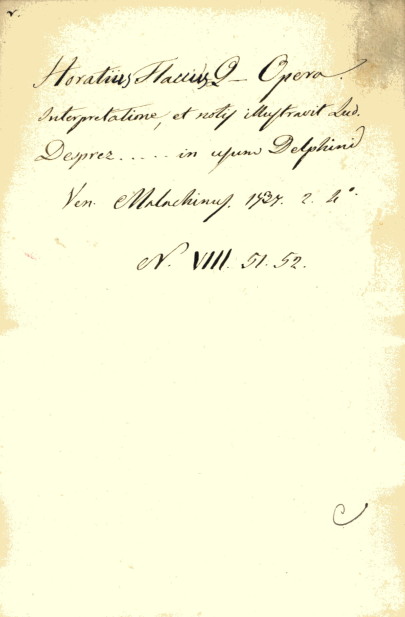 v.
Horatius Flaccus Q – Opera.
Interpretatione, et notis illustravit Lud.
Desprez ..... in usum Delphini
Ven. Malachinus. 1737. 2. 4°.
N. VIII. 51. 52.